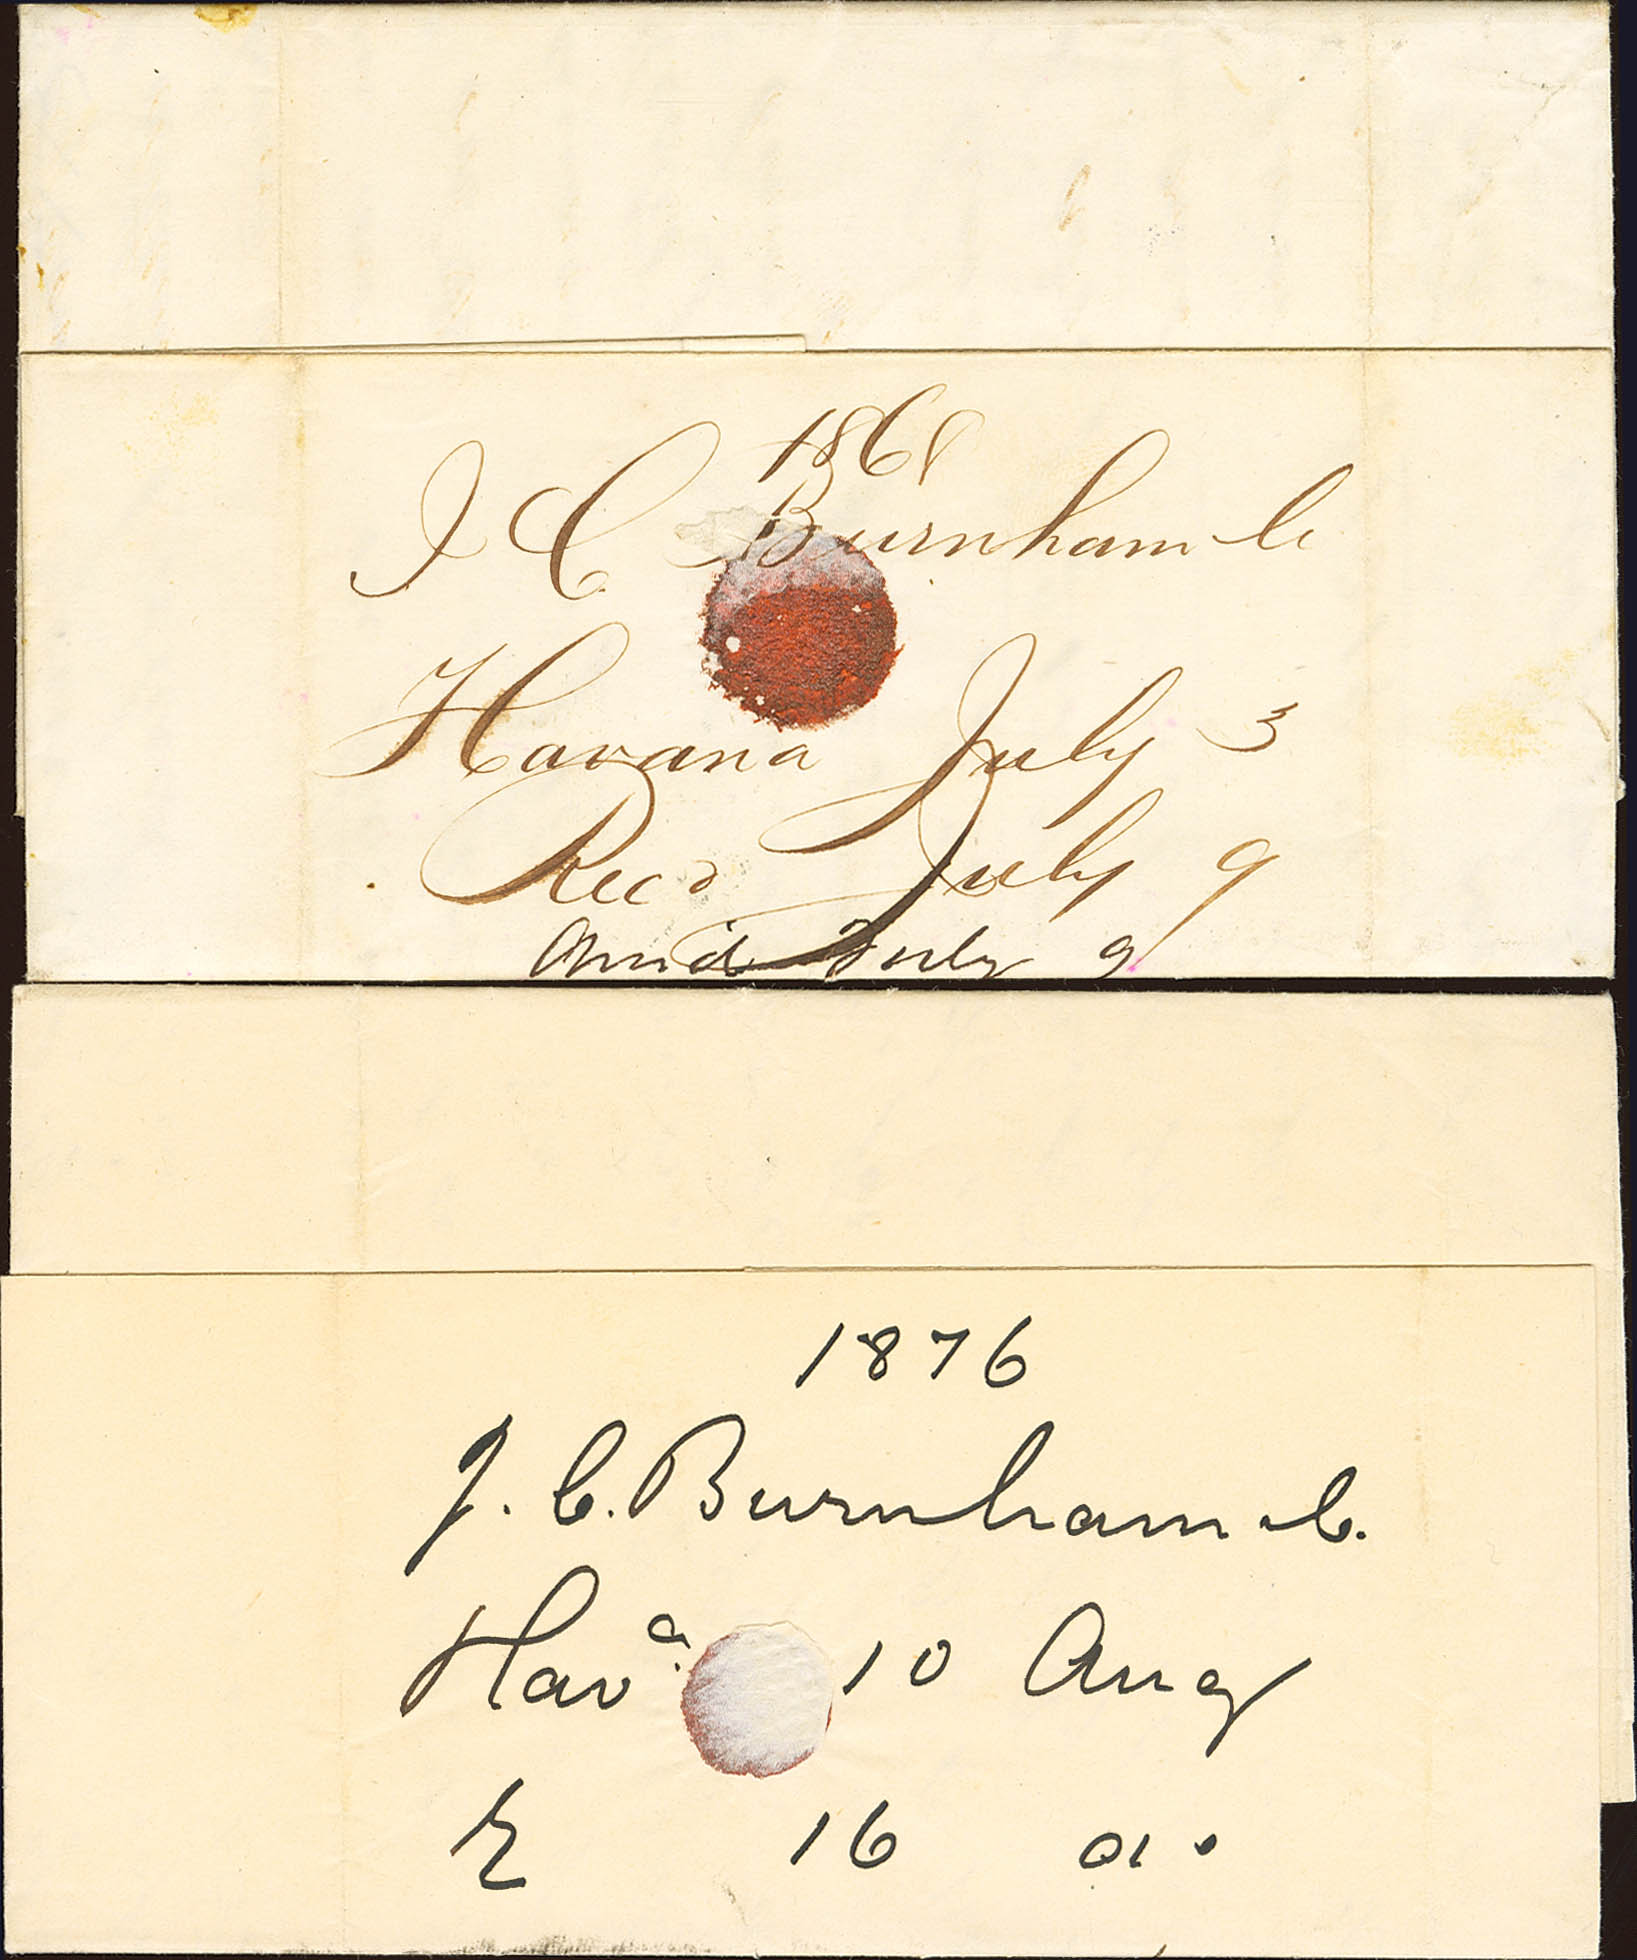 1868
J C Burnham Co
Havana July 3
Recd July 9
July 9
1876
J. C. Burnham Co.
Hava. 10 Aug
16